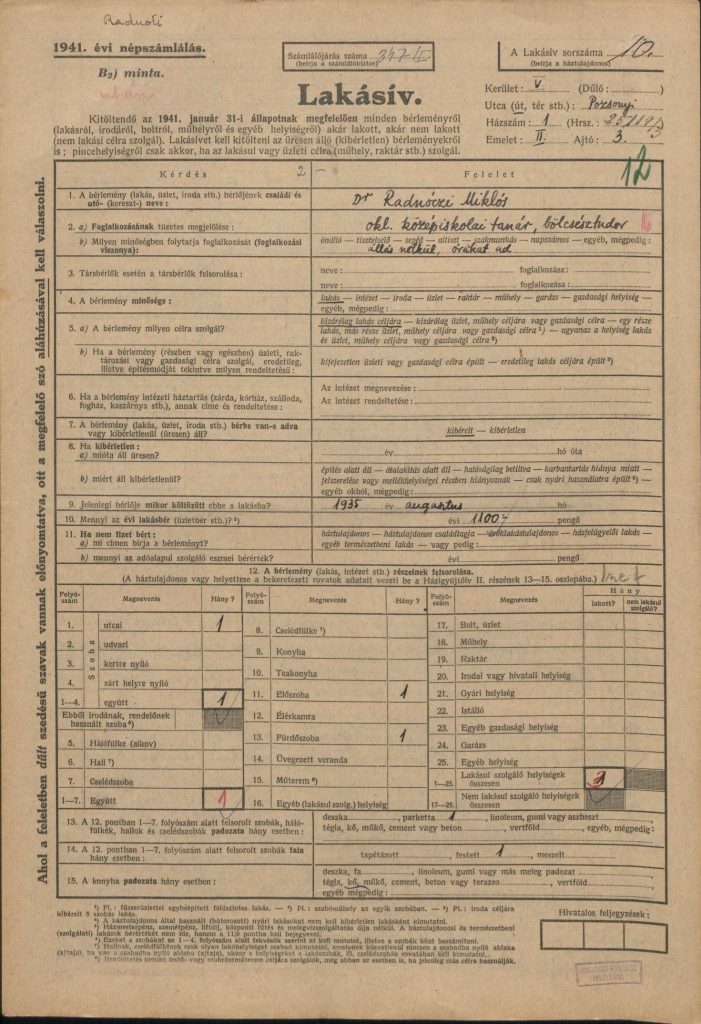 Radnóti
1941. évi népszámlálás.
B₂) minta.
után
Számlálójárás száma 347/II
(beírja a számlálóbiztos)
A Lakásív sorszáma 10.
(beírja a háztulajdonos)
Lakásív.
Kerület: V. (Dűlő:)
Utca (út, tér stb.): Pozsonyi
Házszám: 1 (Hrsz.:
Emelet: II. Ajtó: 3.
Kitöltendő az 1941. január 31-i állapotnak megfelelően minden bérleményről
(lakásról, irodáról, boltról, műhelyről és egyéb helyiségről) akár lakott, akár nem lakott
(nem lakási célra szolgál). Lakásívet kell kitölteni az üresen álló (kibérletlen) bérleményekről
is; pincehelyiségről csak akkor, ha az lakásul vagy üzleti célra (műhely, raktár stb.) szolgál.
12
Ahol a feleletben dűlt szedésű szavak vannak előnyomtatva, ott a megfelelő szó aláhúzásával kell válaszolni.
Kérdés 2 Felelet
1. A bérlemény (lakás, üzlet, iroda stb.) bérlőjének családi és
utó- (kereszt-) neve:
Dr Radnóczi Miklós
2. a) Foglalkozásának tüzetes megjelölése:
okl. középiskolai tanár, bölcsésztudor
b) Milyen minőségben folytatja foglalkozását (foglalkozási
viszonya):
önálló — tisztviselő — segéd — altiszt — szakmunkás — napszámos — egyéb, mégpedig:
állás nélkül, órákat ad
3. Társbérlők esetén a társbérlők felsorolása:
neve: foglalkozása:
neve: foglalkozása:
4. A bérlemény minősége:
lakás — intézet — iroda — üzlet — raktár — műhely — garázs — gazdasági helyiség —
egyéb, mégpedig:
5. a) A bérlemény milyen célra szolgál?
kizárólag lakás céljára — kizárólag üzlet, műhely céljára vagy gazdasági célra — egy része
lakás, más része üzlet, műhely céljára vagy gazdasági célra ¹) — ugyanaz a helyiség lakás
és üzlet, műhely céljára vagy gazdasági célra ²)
b) Ha a bérlemény (részben vagy egészben) üzleti, rak-
tározási vagy gazdasági célra szolgál, eredetileg,
illetve építésmódját tekintve milyen rendeltetésű:
kifejezetten üzleti vagy gazdasági célra épült — eredetileg lakás céljára épült ³)
6. Ha a bérlemény intézeti háztartás (zárda, kórház, szálloda,
fogház, kaszárnya stb.), annak címe és rendeltetése:
Az intézet megnevezése:
Az intézet rendeltetése:
7. A bérlemény (lakás, üzlet, iroda stb.) bérbe van-e adva
vagy kibérletlenül (üresen) áll?
kibérelt — kibérletlen
8. Ha kibérletlen:
a) mióta áll üresen?
év hó óta
b) miért áll kibérletlenül?
építés alatt áll — átalakítás alatt áll — hatóságilag betiltva — karbantartás hiánya miatt —
felszerelése vagy mellékhelyiségei részben hiányoznak — csak nyári használatra épült ⁴) —
egyéb okból, mégpedig:
9. Jelenlegi bérlője mikor költözött ebbe a lakásba?
1935 év augusztus hó
10. Mennyi az évi lakásbér (üzletbér stb.)? ⁵)
évi 1100 pengő
11. Ha nem fizet bért:
a) mi címen bírja a bérleményt?
háztulajdonos — háztulajdonos családtagja — öröklakástulajdonos — házfelügyelői lakás —
egyéb természetbeni lakás — vagy pedig:
b) mennyi az adóalapul szolgáló eszmei bérérték?
évi pengő
12. A bérlemény (lakás, intézet stb.) részeinek felsorolása.
(A háztulajdonos vagy helyettese a bekeretezett rovatok adatait vezeti be a Házigyűjtőív II. részének 13—15. oszlopába.)
Folyó-szám Megnevezés Hány?
Szoba
1. utcai 1
2. udvari
3. kertre nyíló
4. zárt helyre nyíló
1—4. együtt 1
Ebből irodának, rendelőnek
használt szoba ⁶)
5. Hálófülke (alkov)
6. Hall ⁷)
7. Cselédszoba
1—7. Együtt 1
Folyó-szám Megnevezés Hány?
8. Cselédfülke ⁷)
9. Konyha
10. Teakonyha
11. Előszoba 1
12. Éléskamra
13. Fürdőszoba 1
14. Üvegezett veranda
15. Műterem ⁸)
16. Egyéb (lakásul szolg.) helyiség
Folyó-szám Megnevezés Hány
lakott? nem lakásul szolgáló?
17. Bolt, üzlet
18. Műhely
19. Raktár
20. Irodai vagy hivatali helyiség
21. Gyári helyiség
22. Istálló
23. Egyéb gazdasági helyiség
24. Garázs
25. Egyéb helyiség
1—25. Lakásul szolgáló helyiségek
összesen 3
17—25. Nem lakásul szolgáló helyiségek
összesen
13. A 12. pontban 1—7. folyószám alatt felsorolt szobák, háló-
fülkék, hallok és cselédszobák padozata hány esetben:
deszka , parketta 1 , linoleum, gumi vagy aszbeszt ,
tégla, kő, műkő, cement vagy beton , vertföld , egyéb, mégpedig:
14. A 12. pontban 1—7. folyószám alatt felsorolt szobák fala
hány esetben:
tapétázott , festett 1 , meszelt
15. A konyha padozata hány esetben:
deszka, fa , linoleum, gumi vagy más meleg padozat ,
tégla, kő, műkő, cement, beton vagy terazzo , vertföld ,
egyéb mégpedig:
¹) Pl.: fűszerüzlettel egybeépített földszintes lakás. — ²) Pl.: szabóműhely az egyik szobában. — ³) Pl.: iroda céljára
kibérelt 5 szobás lakás.
⁴) A háztulajdonos által használt (bútorozott) nyári lakásokat nem kell kibérletlen lakásként kimutatni.
Hivatalos feljegyzések: